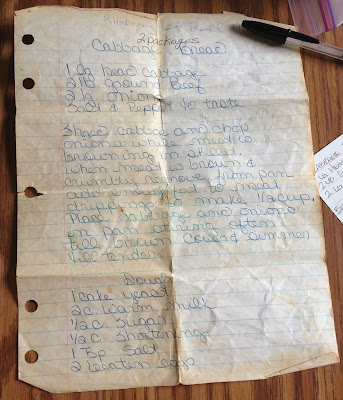 2 packages
Cabbage Bread
1 lg head cabbage
2 lb ground Beef
3 lg onions
Salt & Pepper to taste
Shred cabbage and chop
onions while meat is
browning in skillet
when meat is brown &
crumbly remove from pan
add to meat
drippings to make 1/2 cup.
Place cabbage and onions
in pan stiring often
till brown Cover & simmer
till tender
Dough
1 cake yeast
2 c. warm milk
1/2 c. sugar
1/2 c. shortening
1 Tsp Salt
2 beaten eggs